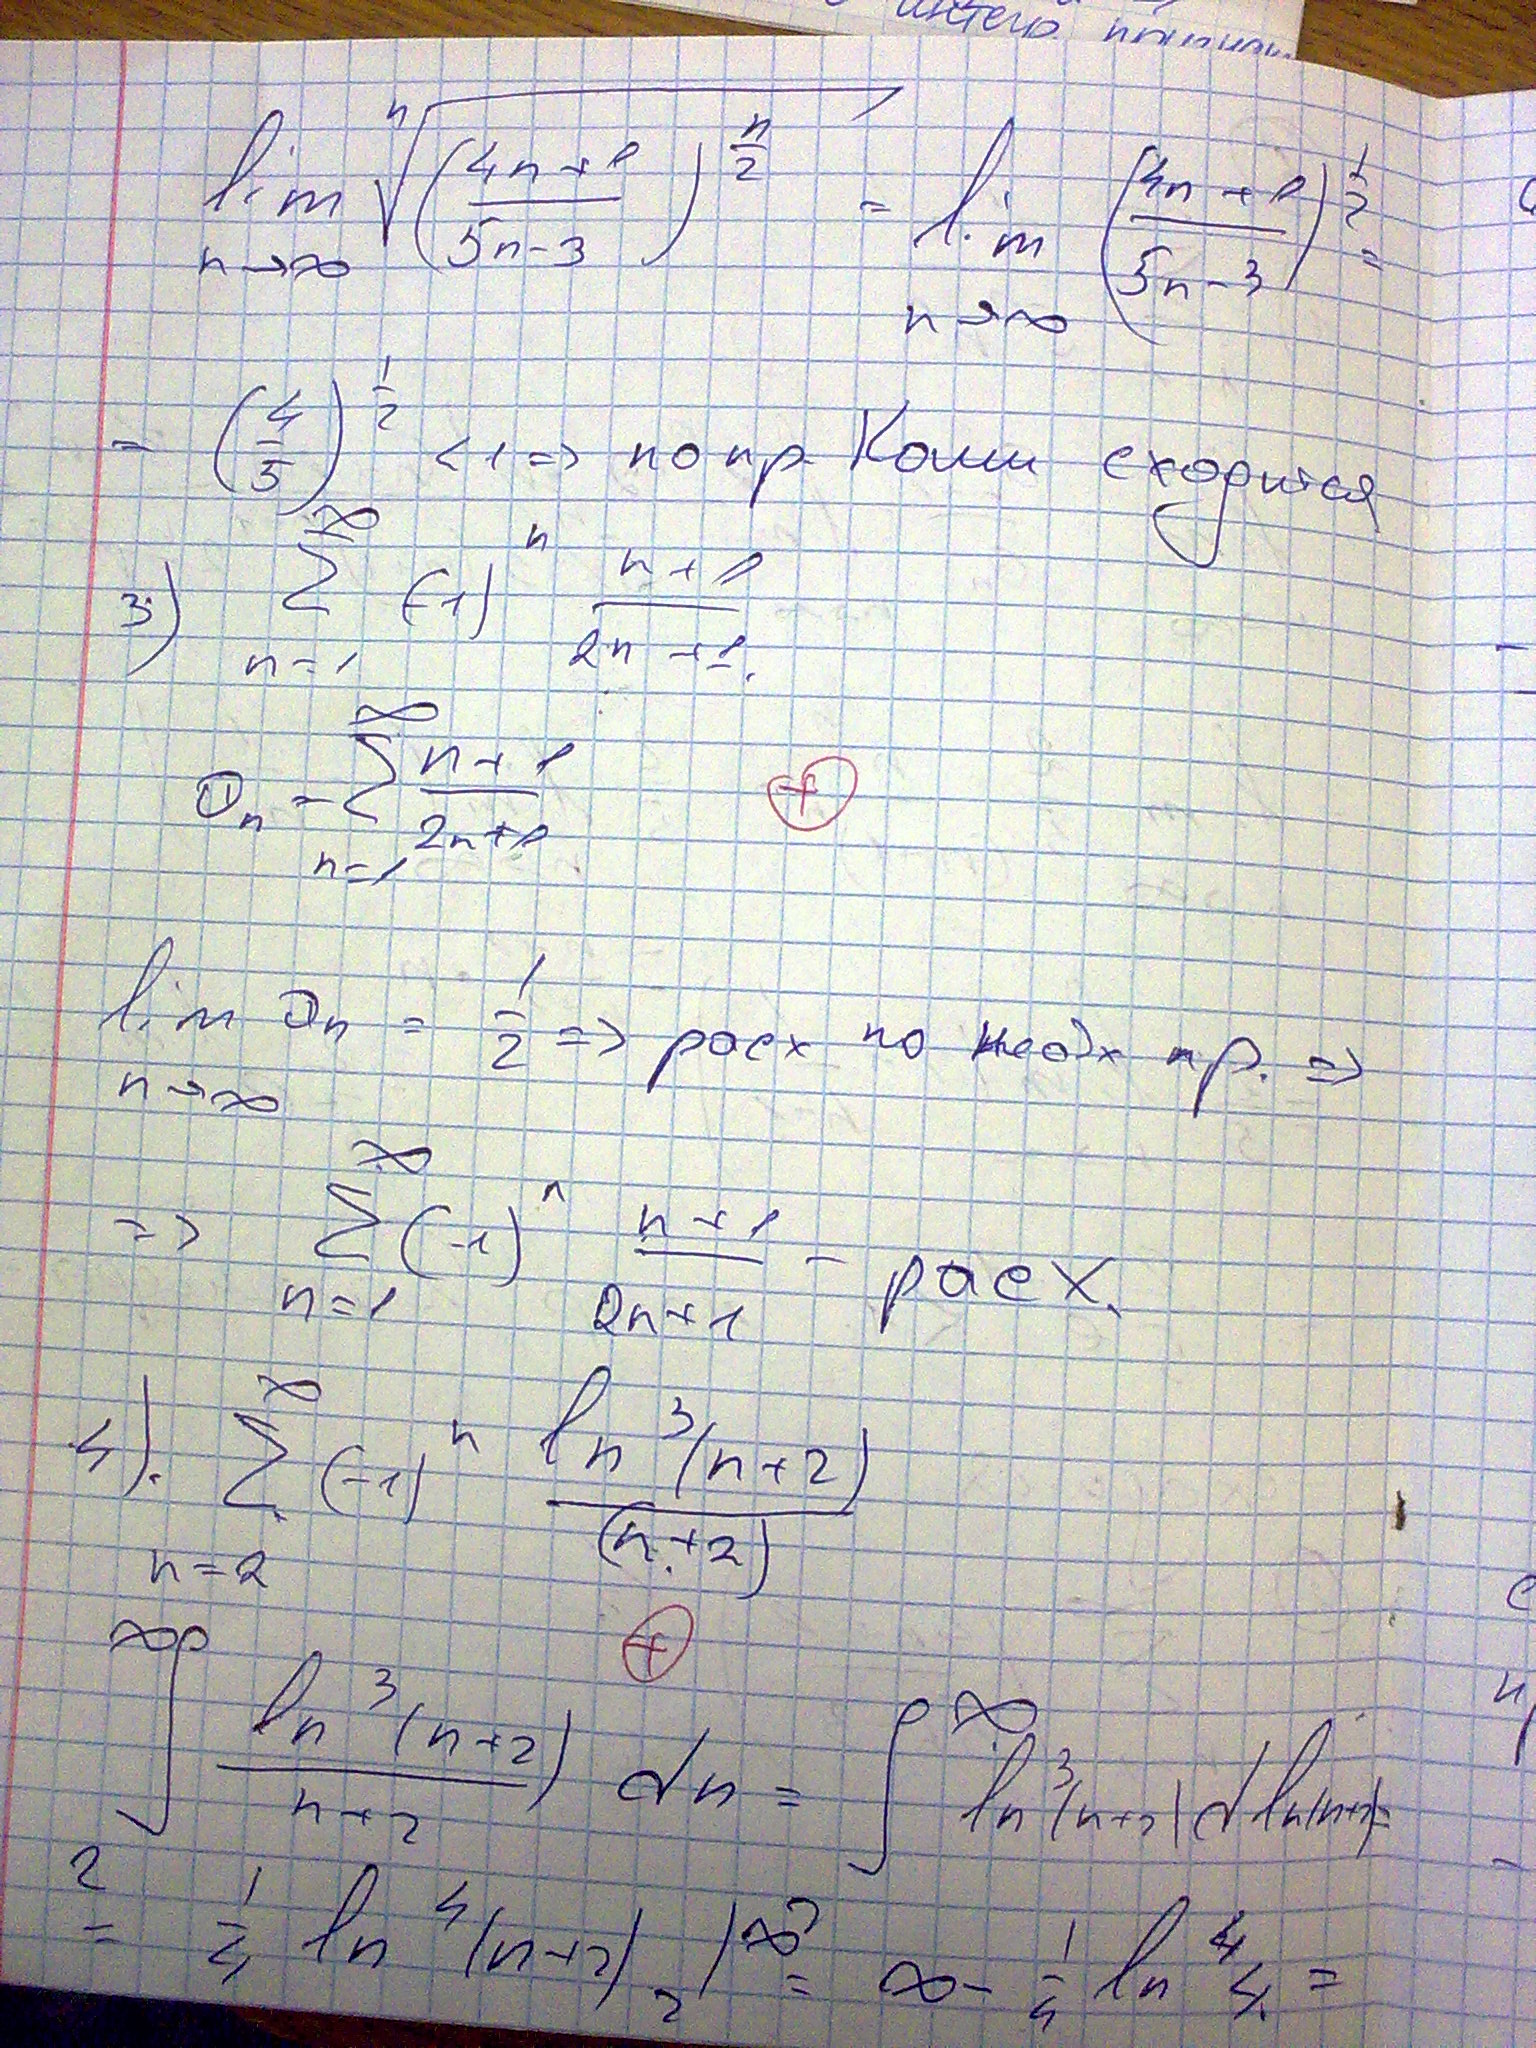 интегр.
lim_{n→∞} ⁿ√((4n+1)/(5n-3))^{n/2} = lim_{n→∞} ((4n+1)/(5n-3))^{1/2} =
= (4/5)^{1/2} < 1 => по пр. Коши сходится
3) ∑_{n=1}^{∞} (-1)^n (n+1)/(2n+1)
a_n = ∑_{n=1}^{∞} (n+1)/(2n+1) +
lim_{n→∞} a_n = 1/2 => расх по необх пр. =>
=> ∑_{n=1}^{∞} (-1)^n (n+1)/(2n+1) - расх.
4). ∑_{n=2}^{∞} (-1)^n ln³(n+2)/(n+2)
+
∫_2^∞ ln³(n+2)/(n+2) dn = ∫^∞ ln³(n+2) d ln(n+2) =
= 1/4 ln⁴(n+2) |_2^∞ = ∞ - 1/4 ln⁴ 4 =